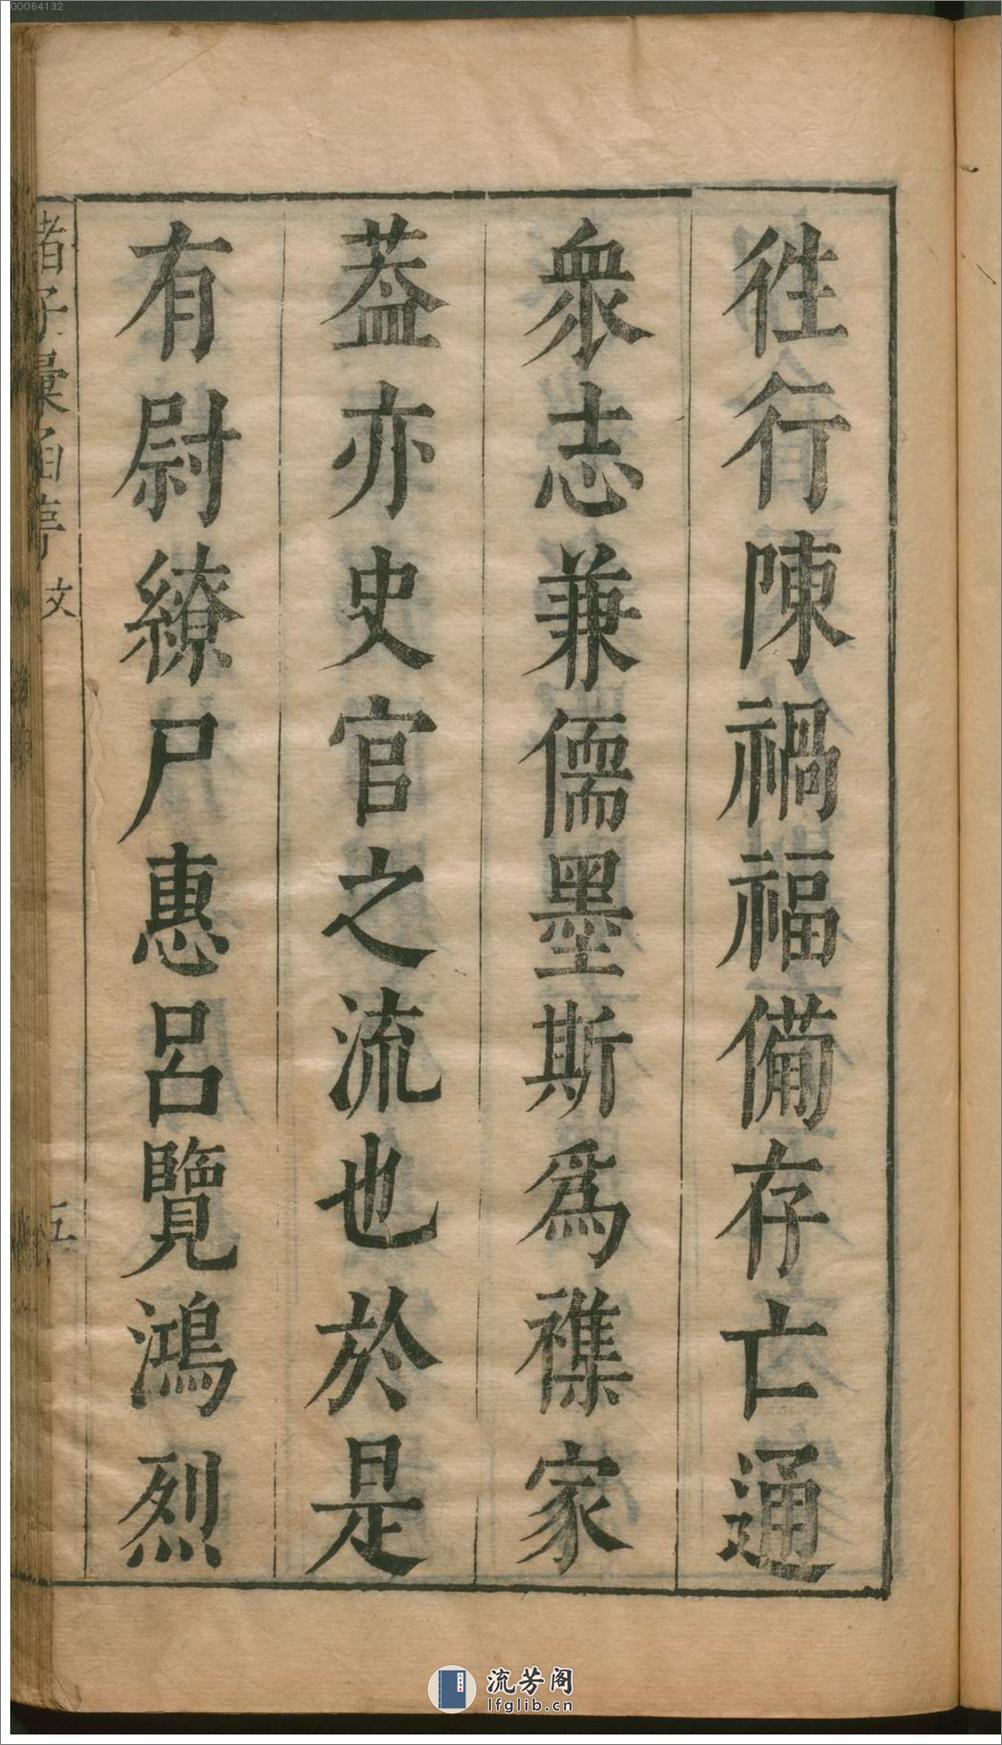 徃行陳禍福備存亡通
衆志兼儒墨斯爲襍家
葢亦史官之流也於是
有尉繚尸惠呂覽鴻烈
諸子彙函序 文
五
00064132
流芳阁
lfglib.cn